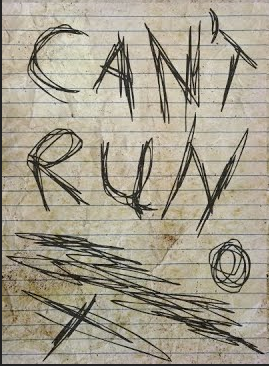 CAN'T
RUN